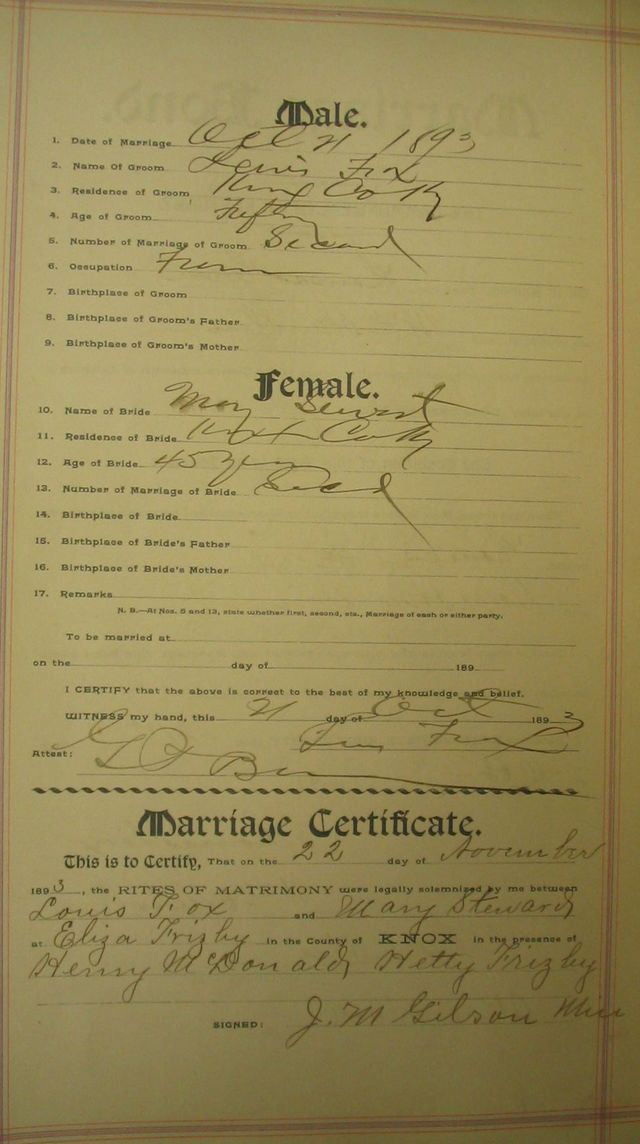 Male.
1. Date of Marriage Oct 21 1893
2. Name Of Groom Lewis Fox
3. Residence of Groom Knox Co Ky
4. Age of Groom Fifty
5. Number of Marriage of Groom Second
6. Occupation Farm
7. Birthplace of Groom
8. Birthplace of Groom's Father
9. Birthplace of Groom's Mother
Female.
10. Name of Bride Mary Stewart
11. Residence of Bride Knox Co Ky
12. Age of Bride 45 years
13. Number of Marriage of Bride Second
14. Birthplace of Bride
15. Birthplace of Bride's Father
16. Birthplace of Bride's Mother
17. Remarks
N. B.—At Nos. 5 and 13, state whether first, second, etc., Marriage of each or either party.
To be married at
on the day of 189
I CERTIFY that the above is correct to the best of my knowledge and belief.
WITNESS my hand, this 21 day of Oct 1893
Fox
Attest:
Marriage Certificate.
This is to Certify, That on the 22 day of November
1893, the RITES OF MATRIMONY were legally solemnized by me between
Louis Fox and Mary Steward
at Eliza Frizby in the County of KNOX in the presence of
Henry McDonald, Hetty Frizby
SIGNED: J. M Gilson Min